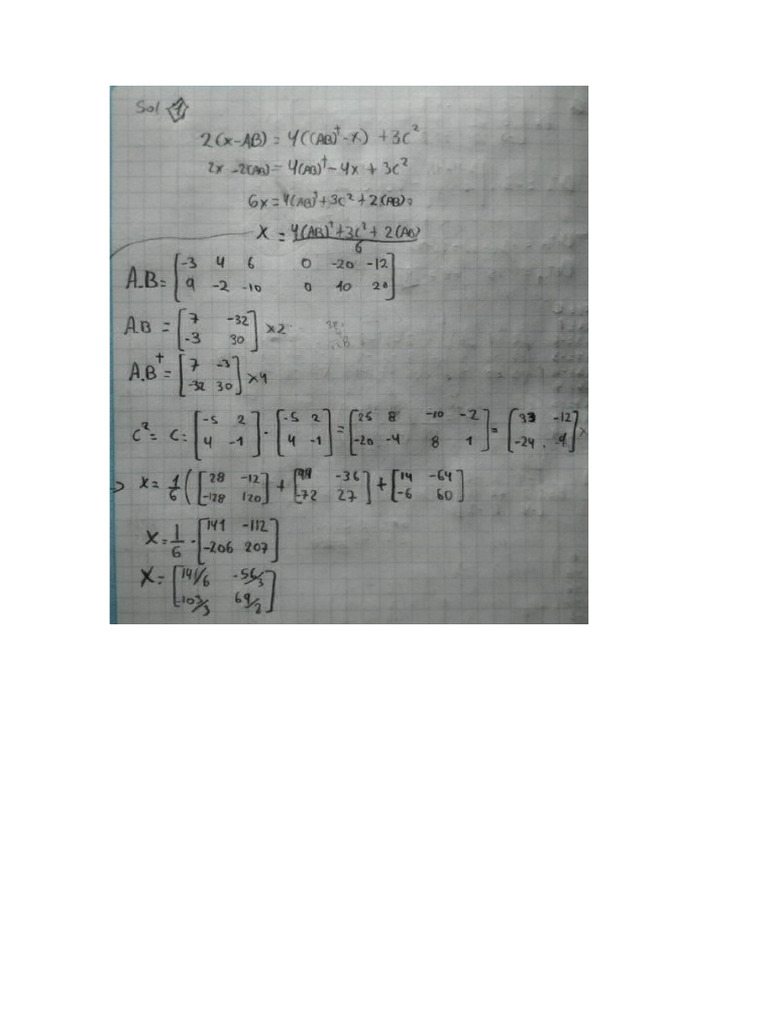 Sol 1
2(x-AB) = 4((AB)^t - x) + 3C^2
2x - 2(AB) = 4(AB)^t - 4x + 3C^2
6x = 4(AB)^t + 3C^2 + 2(AB)
X = 4(AB)^t + 3C^2 + 2(AB) / 6
A.B = [-3 4 6 0 -20 -12
9 -2 -10 0 10 20]
AB = [7 -32
-3 30] x2
A.B^t = [7 -3
-32 30] x4
C^2 = C: [-5 2
4 -1] · [-5 2
4 -1] = [25 8 -10 -2
-20 -4 8 1] = [33 -12
-24 9] x
=> x = 1/6 ([28 -12
-128 120] + [99 -36
-72 27] + [14 -64
-6 60]
X = 1/6 · [141 -112
-206 207]
X = [141/6 -56/3
-103/3 69/2]